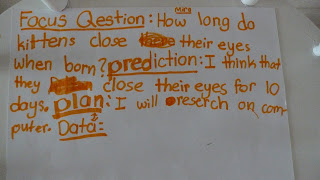 Mira
Focus Qestion: How long do
kittens close their eyes
when born? prediction: I think that
they close their eyes for 10
days. plan: I will reserch on com
puter. Data: